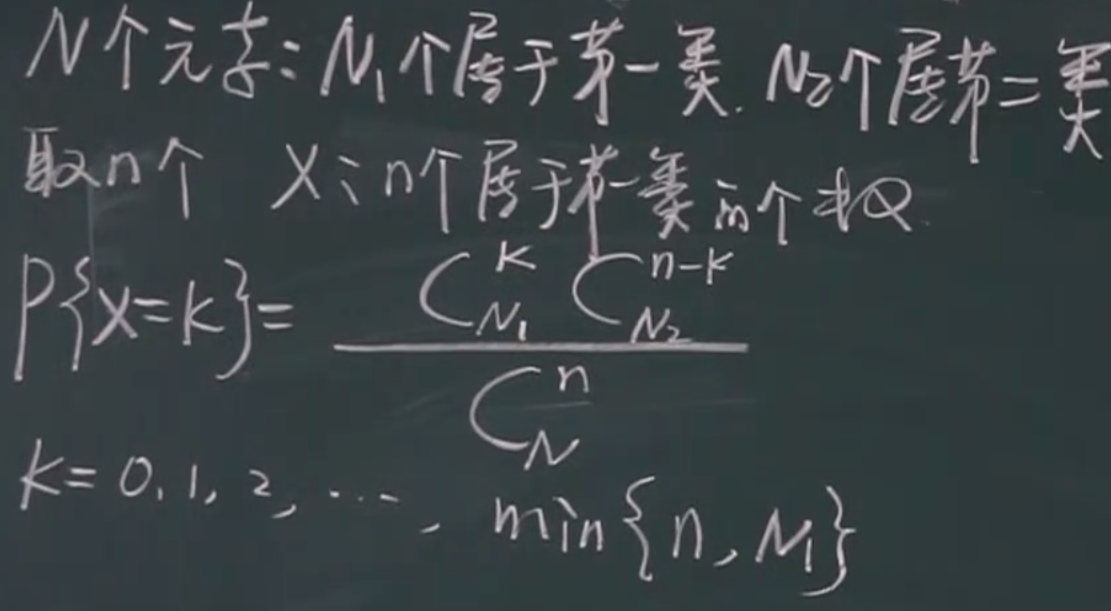 N个元素: N₁个属于第一类. N₂个属第二类
取n个 X: n个属于第一类的个数.
P{X=k}= \frac{C_{N_1}^{k} C_{N_2}^{n-k}}{C_N^n}
k=0,1,2,…, min{n,N₁}